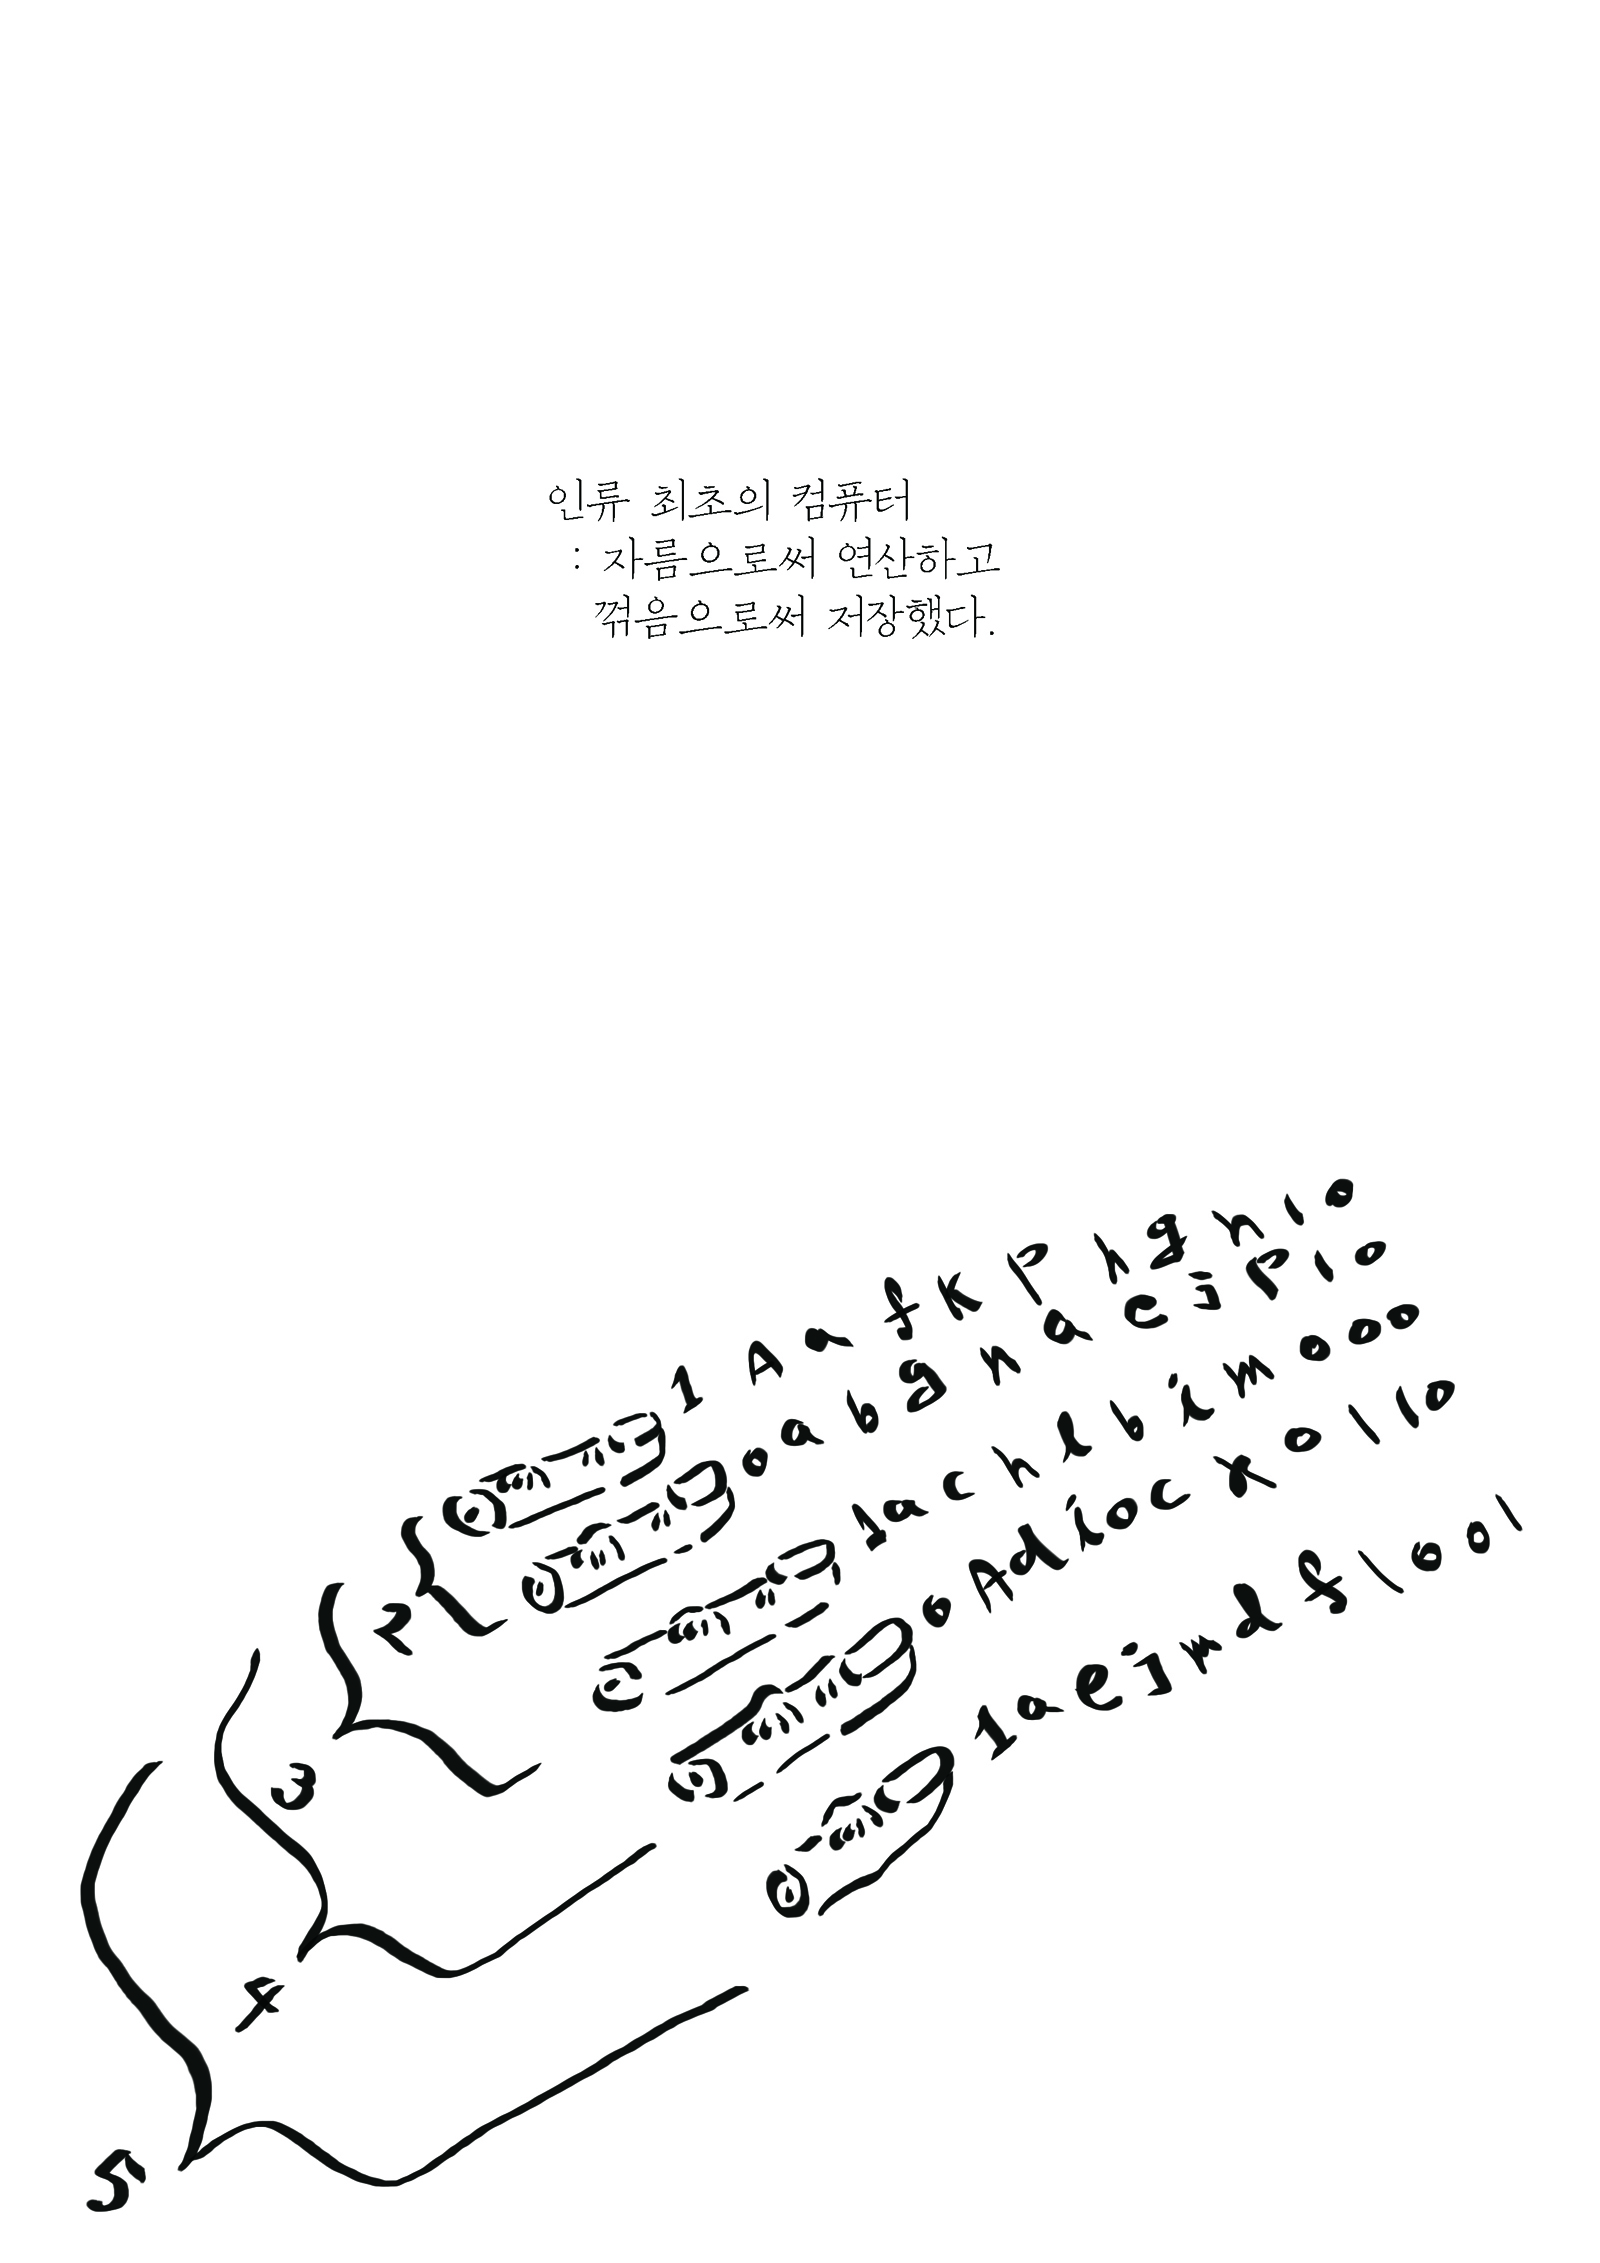 인류 최초의 컴퓨터
: 자름으로써 연산하고
꺾음으로써 저장했다.
1 A a f k p h g h 1 0
0 a b g n a e j p 1 0
1 a c h l b i m 0 0 0
0 A d i o c x 0 1 1 0
1 a e j m d f 1 0 0 1
2
3
4
5